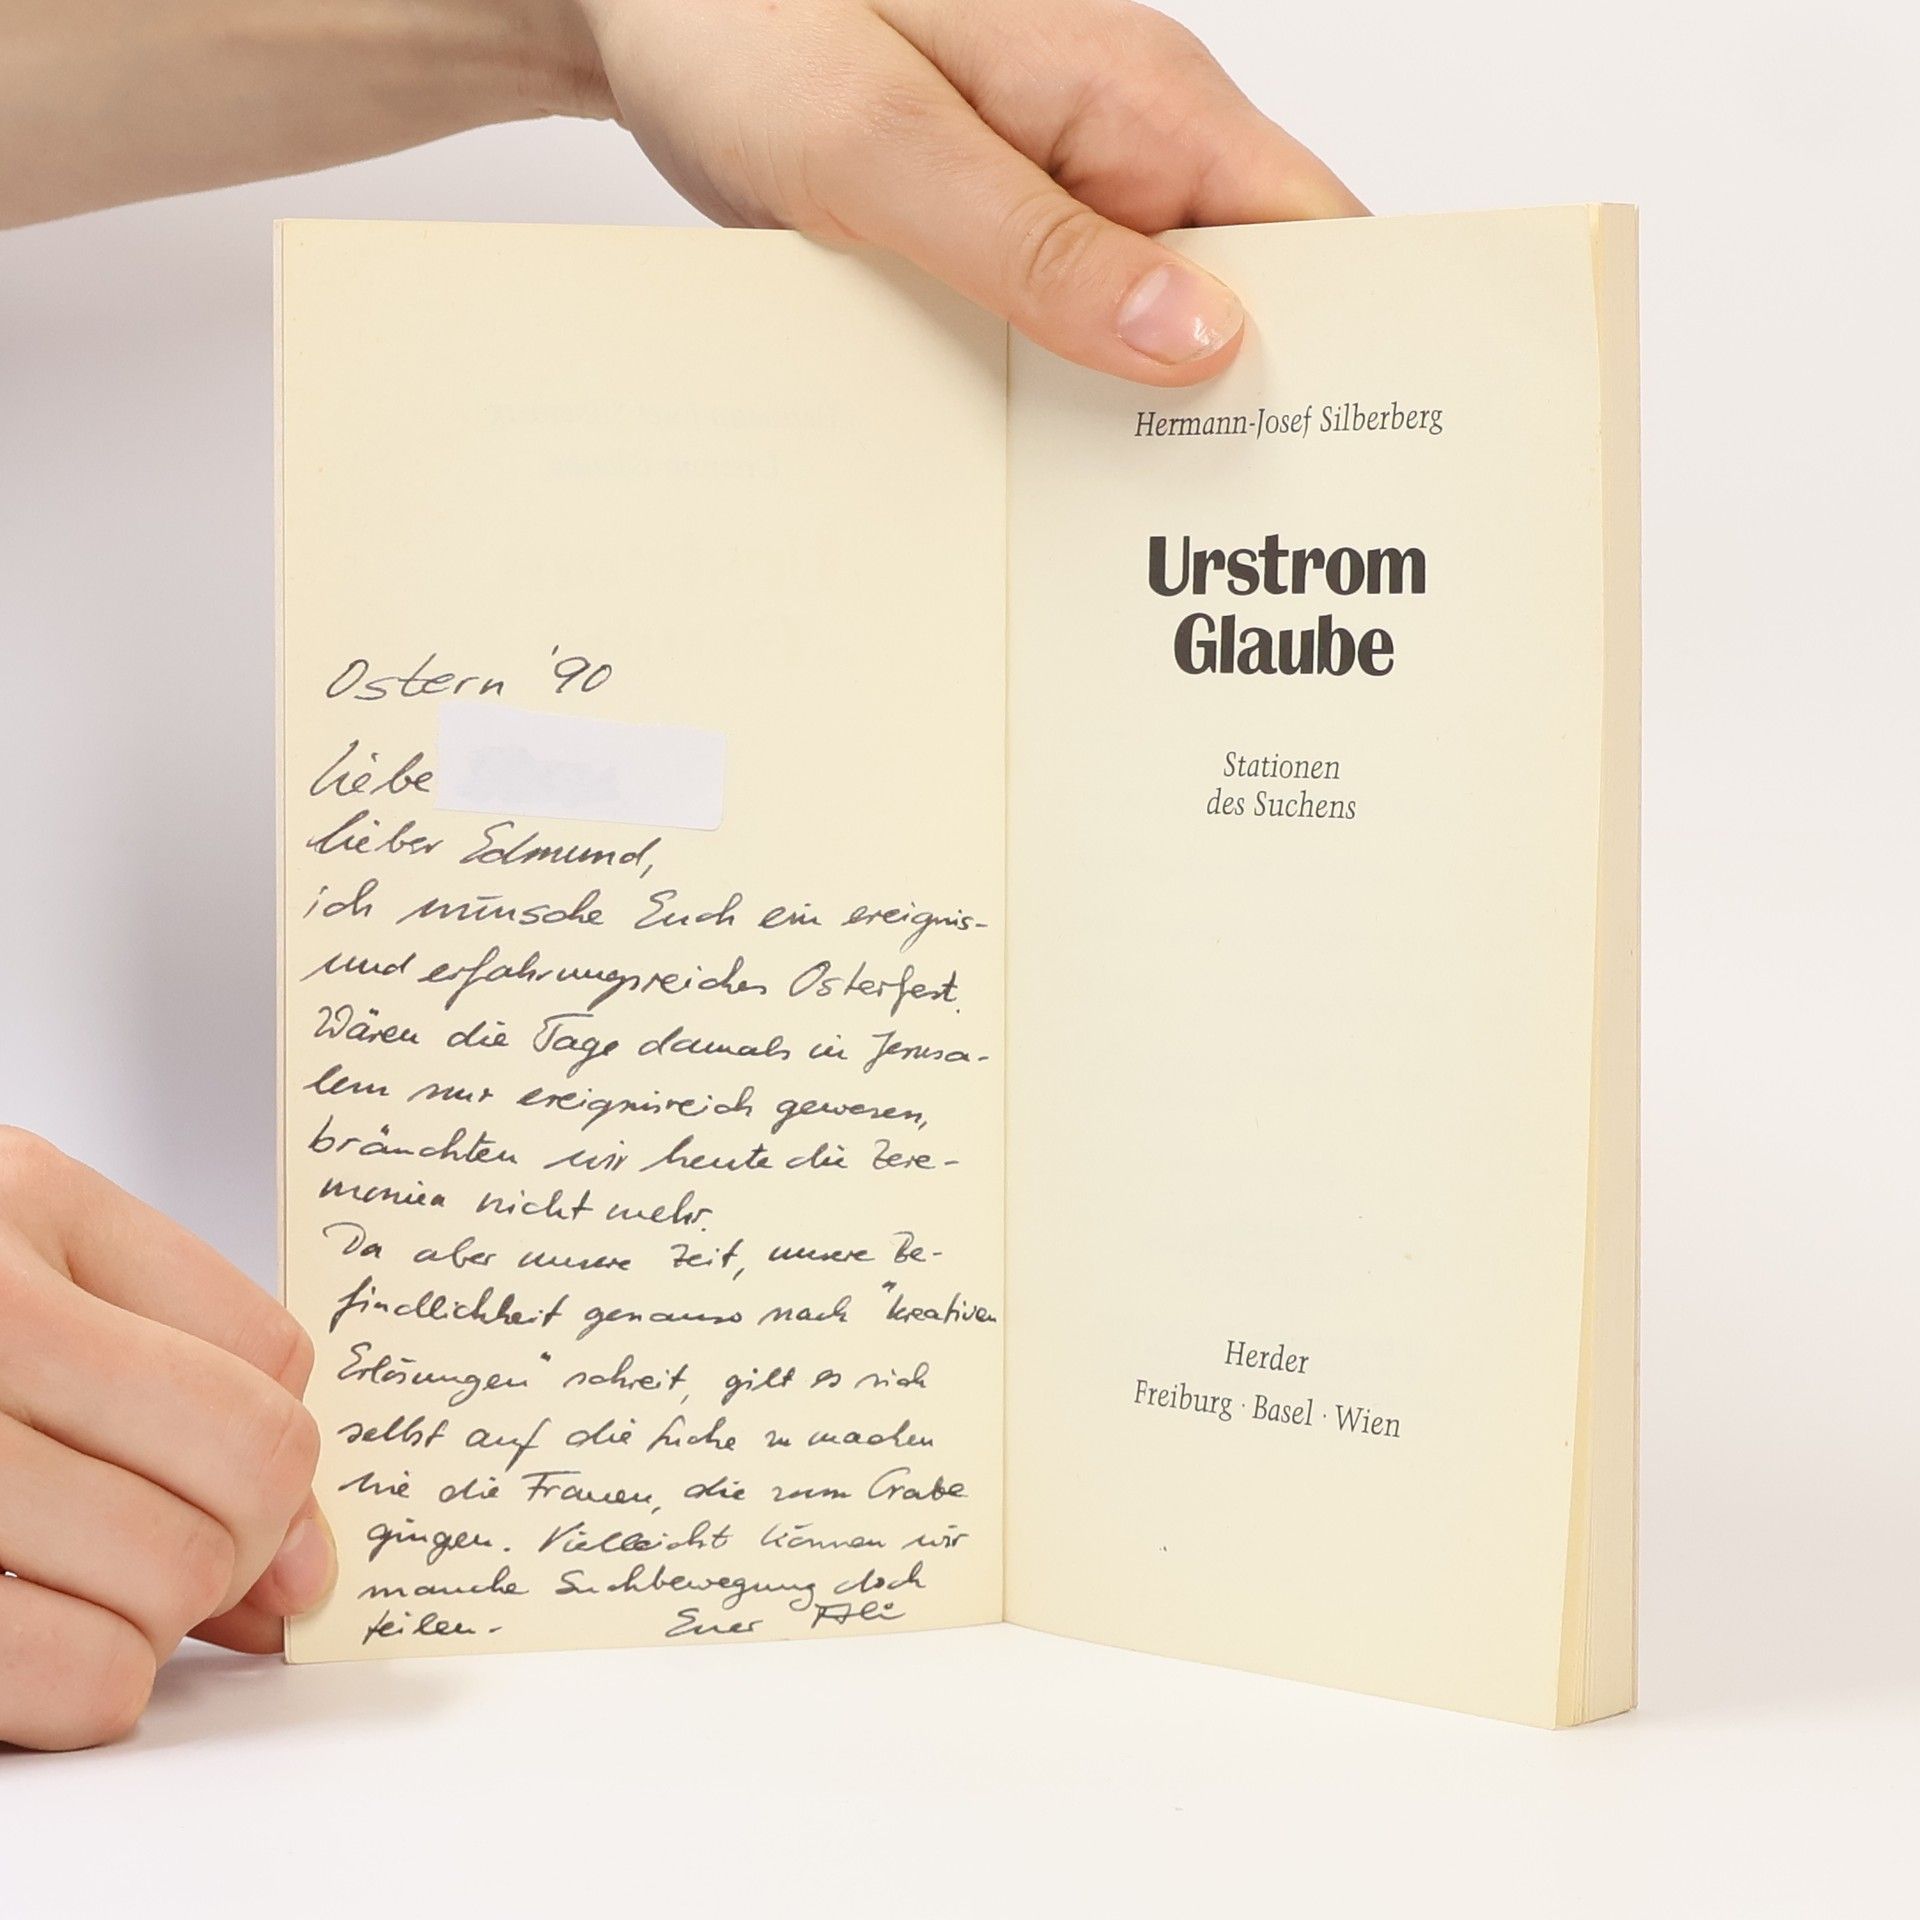 Ostern '90
Liebe
lieber Edmund,
ich wünsche Euch ein ereignis-
und erfahrungsreiches Osterfest.
Wären die Tage damals in Jerusa-
lem nur ereignisreich gewesen,
bräuchten wir heute die Zere-
monien nicht mehr.
Da aber unsere Zeit, unsere Be-
findlichkeit genauso nach "kreativen
Erlösungen" schreit, gilt es sich
selbst auf die Suche zu machen
wie die Frauen, die zum Grabe
gingen. Vielleicht können wir
manche Suchbewegung doch
teilen-
Euer
Hermann-Josef Silberberg
Urstrom
Glaube
Stationen
des Suchens
Herder
Freiburg · Basel · Wien